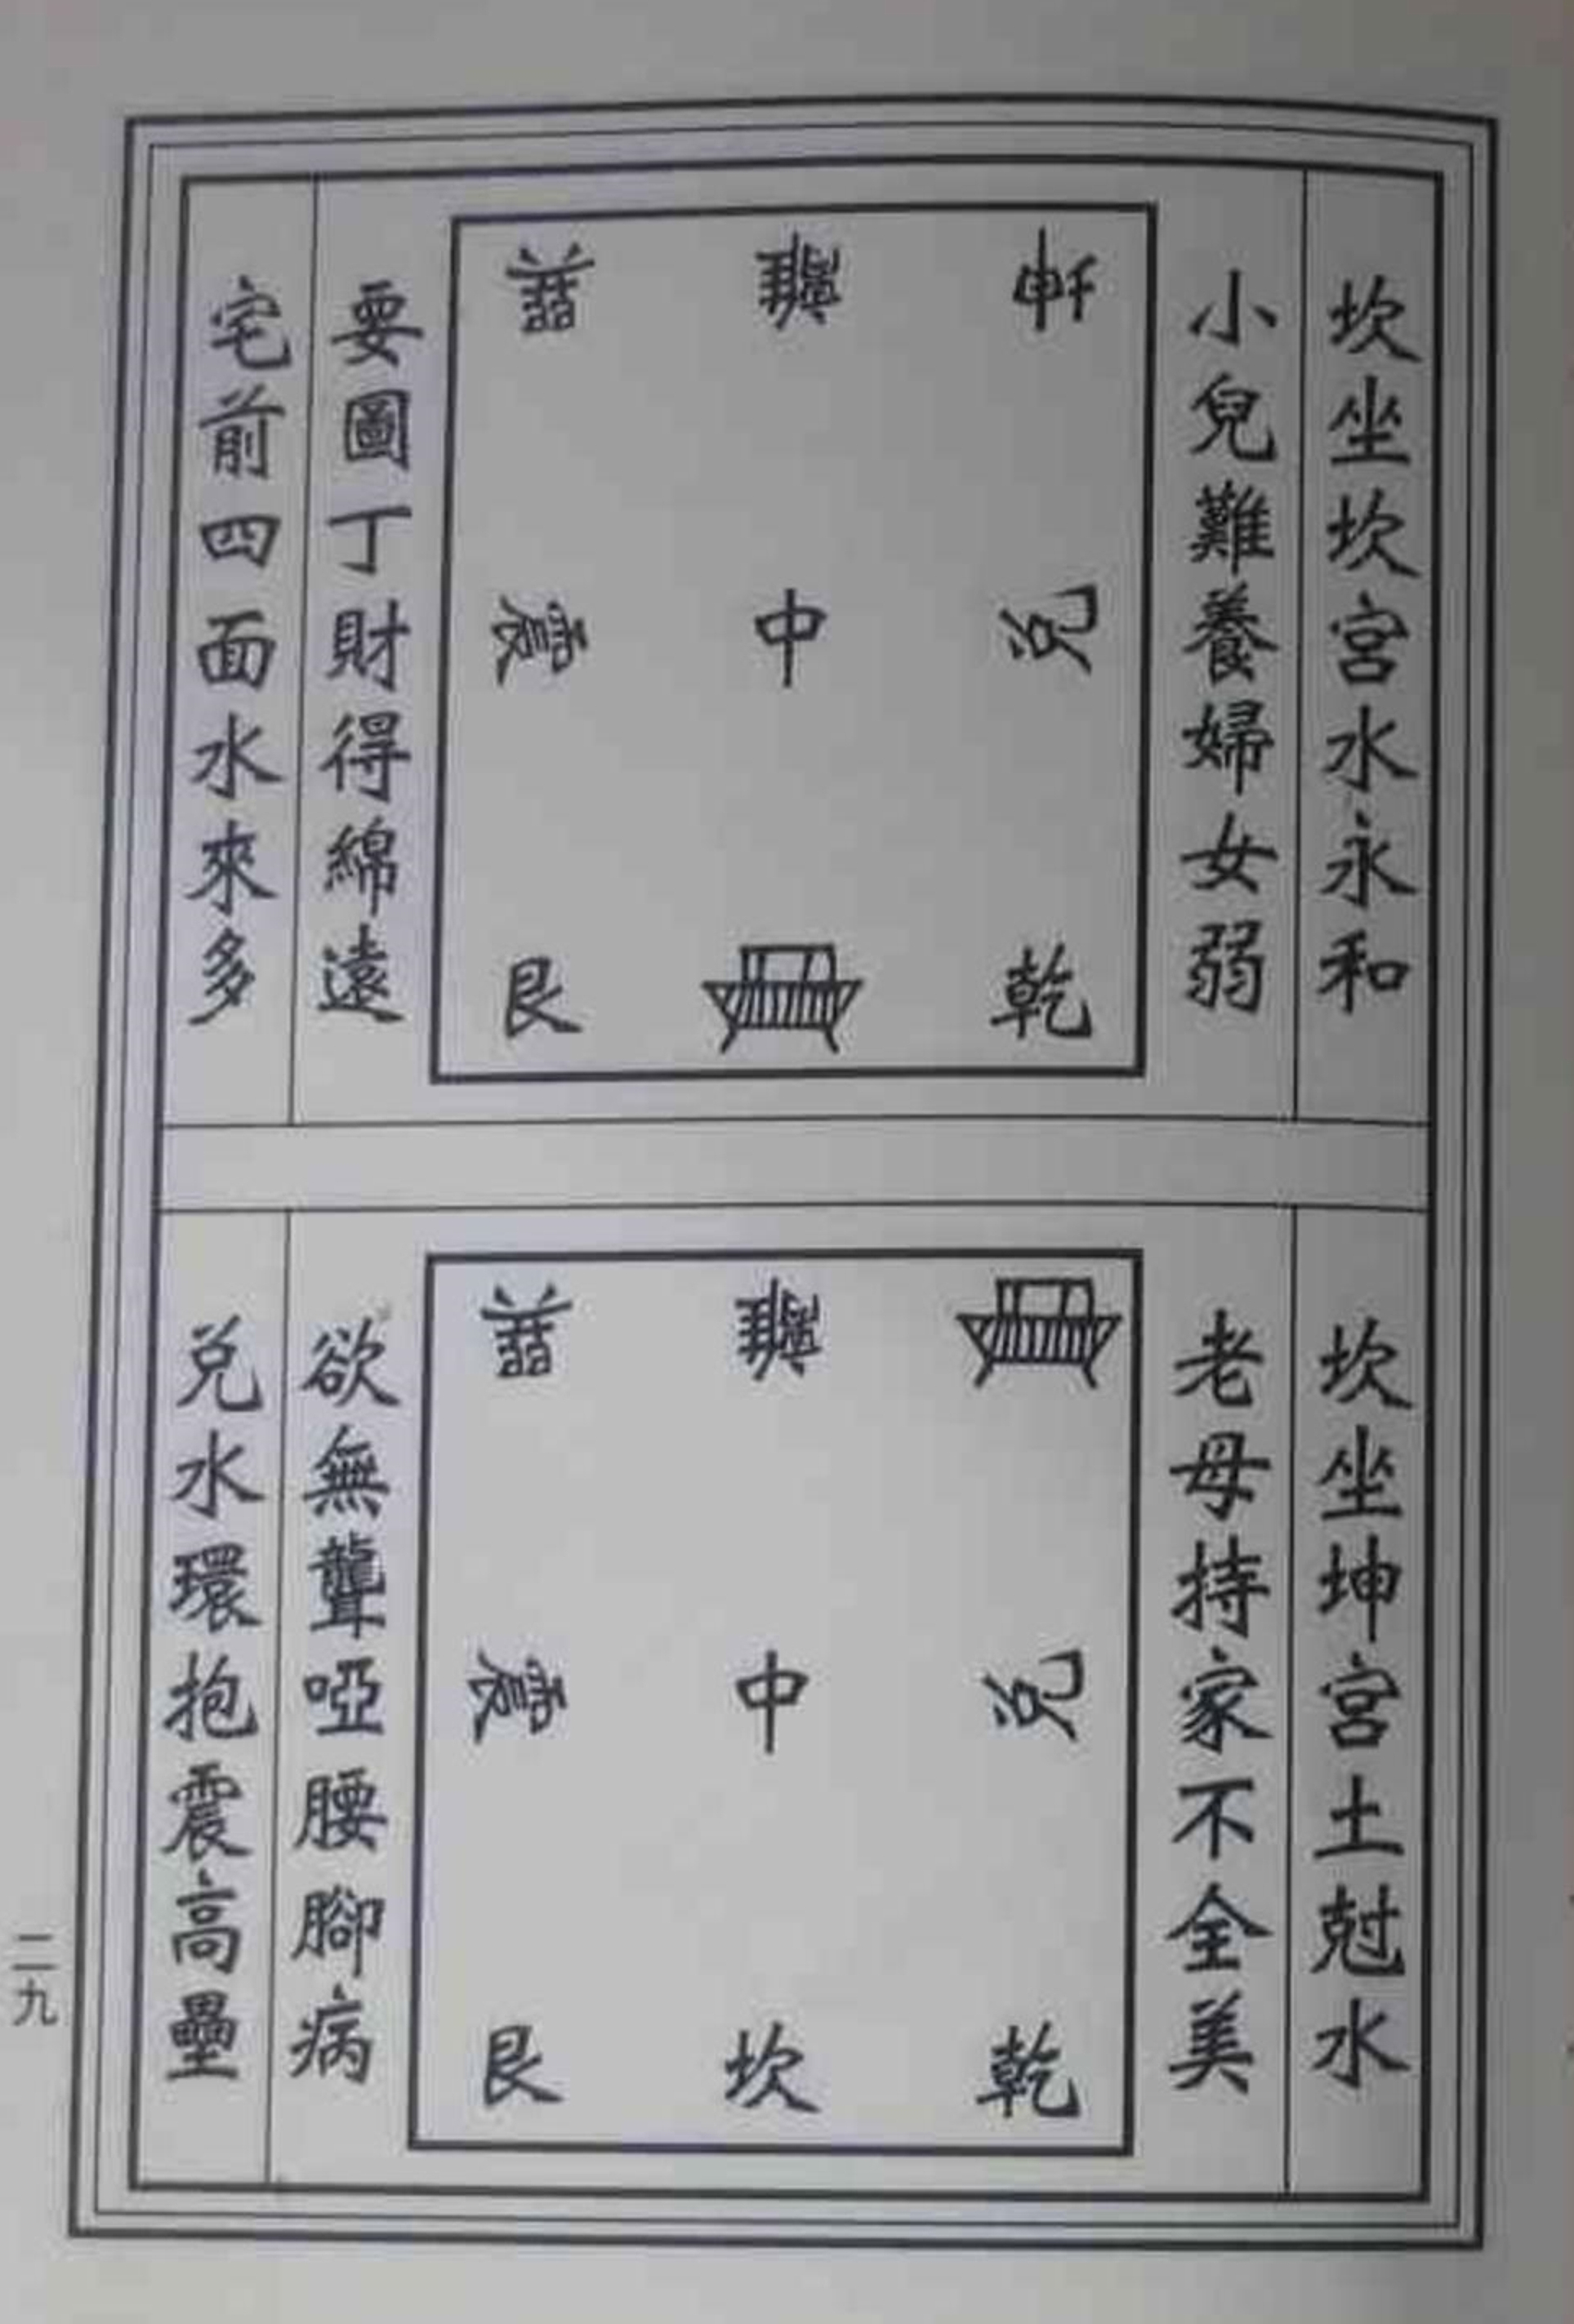 坎坐坎宮水永和
小兒難養婦女弱
巽 離 坤
震 中 兌
艮 乾
要圖丁財得綿遠
宅前四面水來多
坎坐坤宮土尅水
老母持家不全美
巽 離
震 中 兌
艮 坎 乾
欲無聾啞腰腳病
兑水環抱震高壘
二九